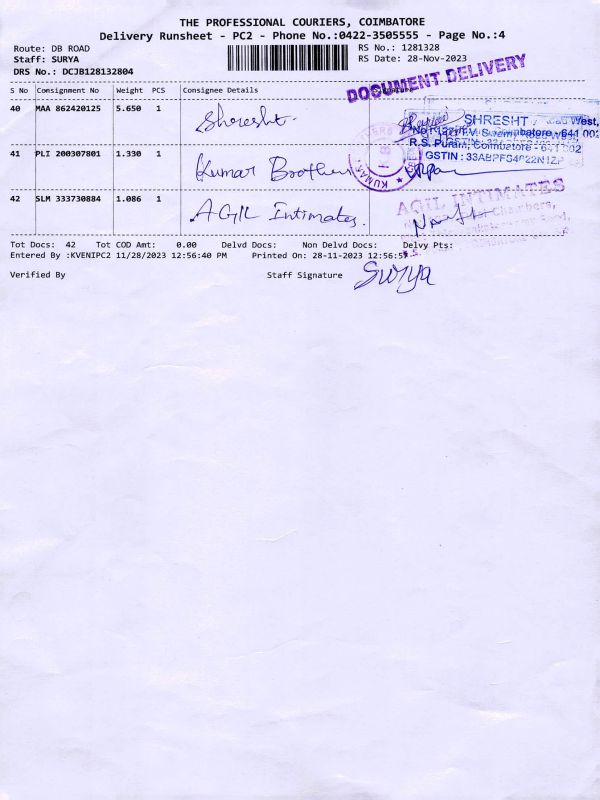 THE PROFESSIONAL COURIERS, COIMBATORE
Delivery Runsheet - PC2 - Phone No.:0422-3505555 - Page No.:4
Route: DB ROAD
RS No.: 1281328
Staff: SURYA
RS Date: 28-Nov-2023
DRS No.: DCJB128132804
DOCUMENT DELIVERY
S No Consignment No Weight PCS Consignee Details
40 MAA 862420125 5.650 1 Shresht.
SHRESHT
R.S. Puram, Coimbatore - 641 002
GSTIN : 33ABPFS4922N1ZP
41 PLI 200307801 1.330 1 Kumar Brothers
KUMAR
42 SLM 333730884 1.086 1 AGIL Intimates.
AGIL INTIMATES
Chambers,
Tot Docs: 42 Tot COD Amt: 0.00 Delvd Docs: Non Delvd Docs: Delvy Pts:
Entered By :KVENIPC2 11/28/2023 12:56:40 PM Printed On: 28-11-2023 12:56:5
Verified By Staff Signature Surya